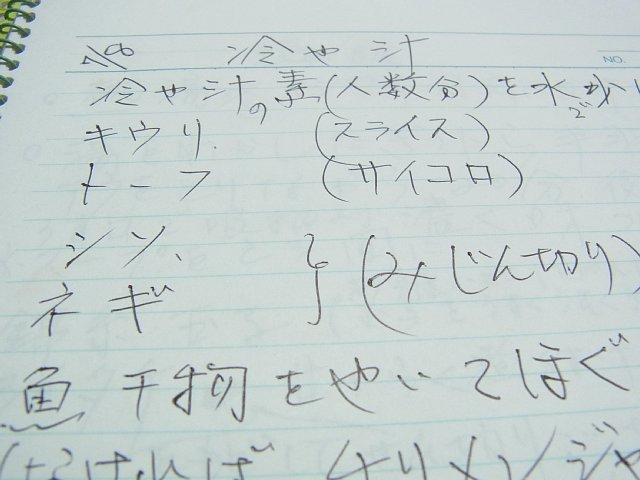 冷や汁
NO.
冷や汁の素(人数分)を水で
キウリ. (スライス)
トーフ (サイコロ)
シソ、
ネギ } (みじん切り)
魚 干物をやいてほぐ
なければ チリメンジャ